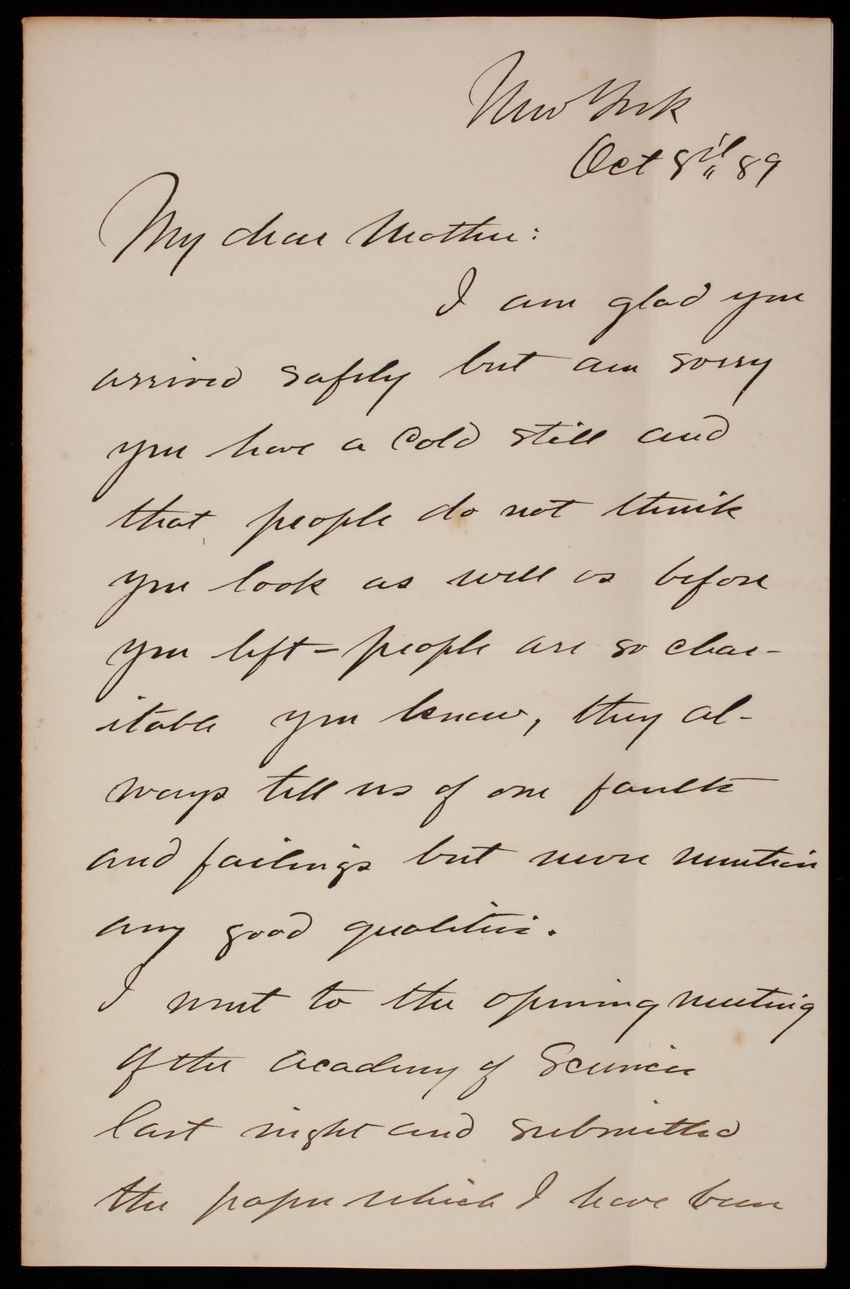 New York
Oct 8th 89
My dear Mother:
I am glad you
arrived safely but am sorry
you have a cold still and
that people do not think
you look as well as before
you left - people are so char-
itable you know, they al-
ways tell us of our faults
and failings but never mention
any good qualities.
I went to the opening meeting
of the Academy of Sciences
last night and submitted
the paper which I have been